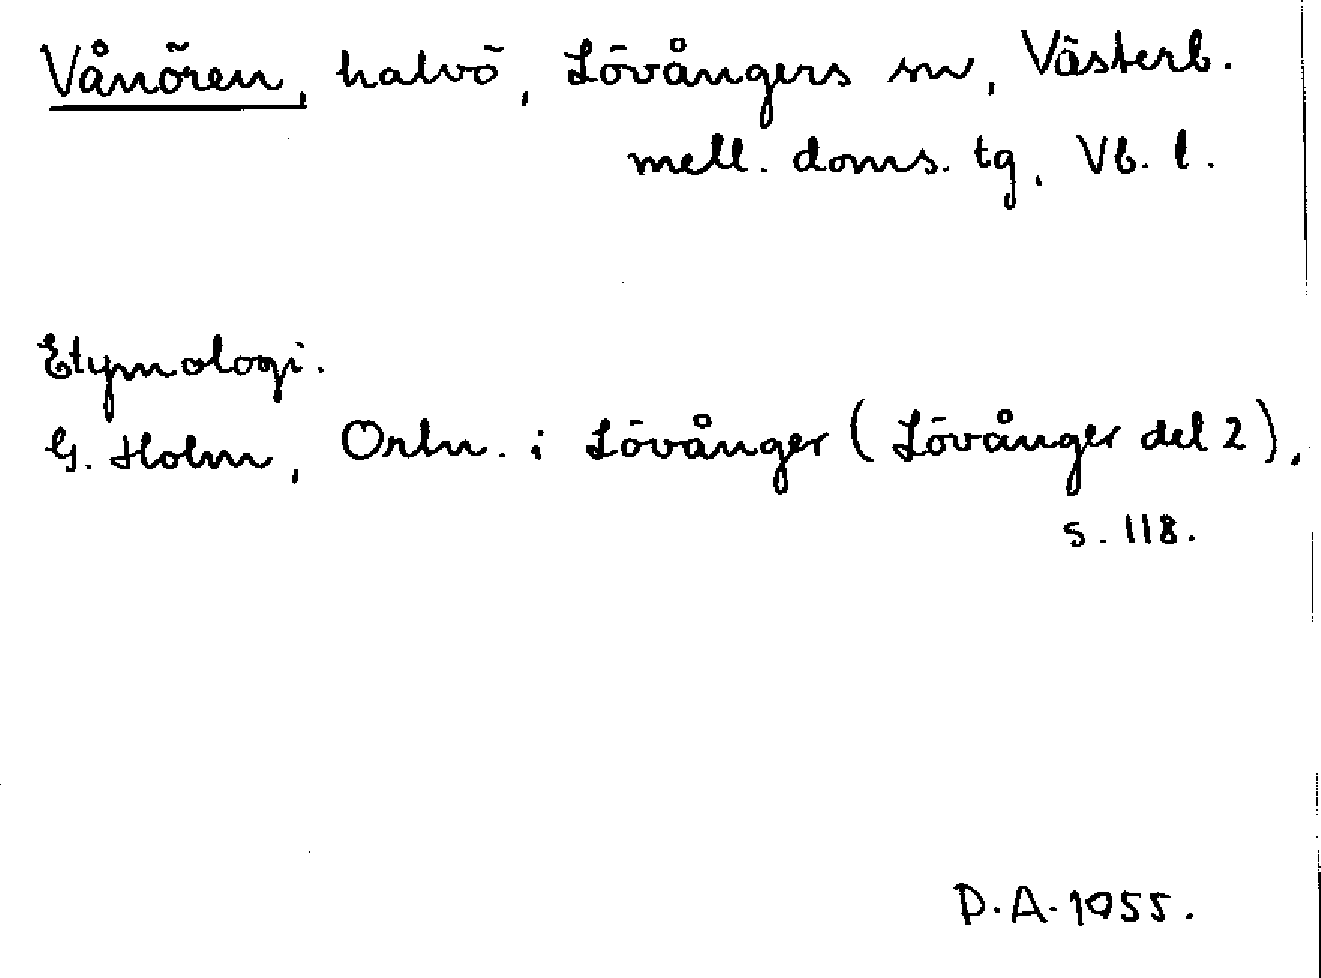 Vånören, halvö, Lövångers sn, Västerb.
mell. doms. tg, Vb. l.
Etymologi.
G. Holm, Ortn. i Lövånger (Lövånger del 2),
s. 118.
D.A. 1955.